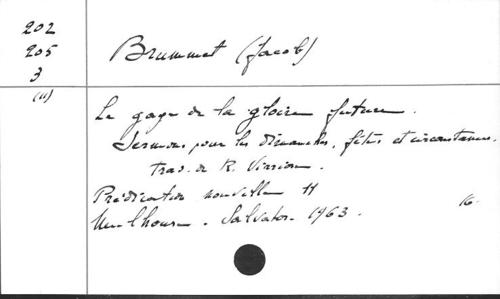 202
205
3
(11)
Brummet (Jacob)
Le gage de la gloire future.
Sermons pour les dimanches, fêtes et circonstances.
Trad. de R. Virrion.
Prédication nouvelle 11
Mulhouse. Salvator. 1963. 16